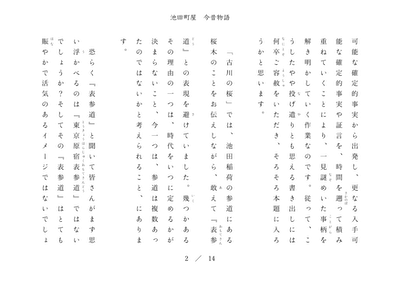 池田町屋 今昔物語
可能な確定的事実から出発し、更なる入手可
能な確定的事実や証言を、時間を遡って積み
重ねていくことにより、一見謎めいた事柄を
解き明かしていく作業なのです。従って、こ
うしたやや投げ遣りとも思える書き出しには
何卒ご容赦をいただき、そろそろ本題に入ろ
うかと思います。
「古川の桜」では、池田稲荷の参道にある
桜木のことをお伝えしながら、敢えて『表参
道』との表現を避けていました。幾つかある
その理由の一つは、時代をいつに定めるかが
決まらないこと、今一つは、参道は複数あっ
たのではないかと考えられること、にありま
す。
恐らく『表参道』と聞いて皆さんがまず思
い浮かべるのは『東京原宿表参道』ではない
でしょうか?そしてその『表参道』はとても
賑やかで活気のあるイメージではないでしょ
2 / 14